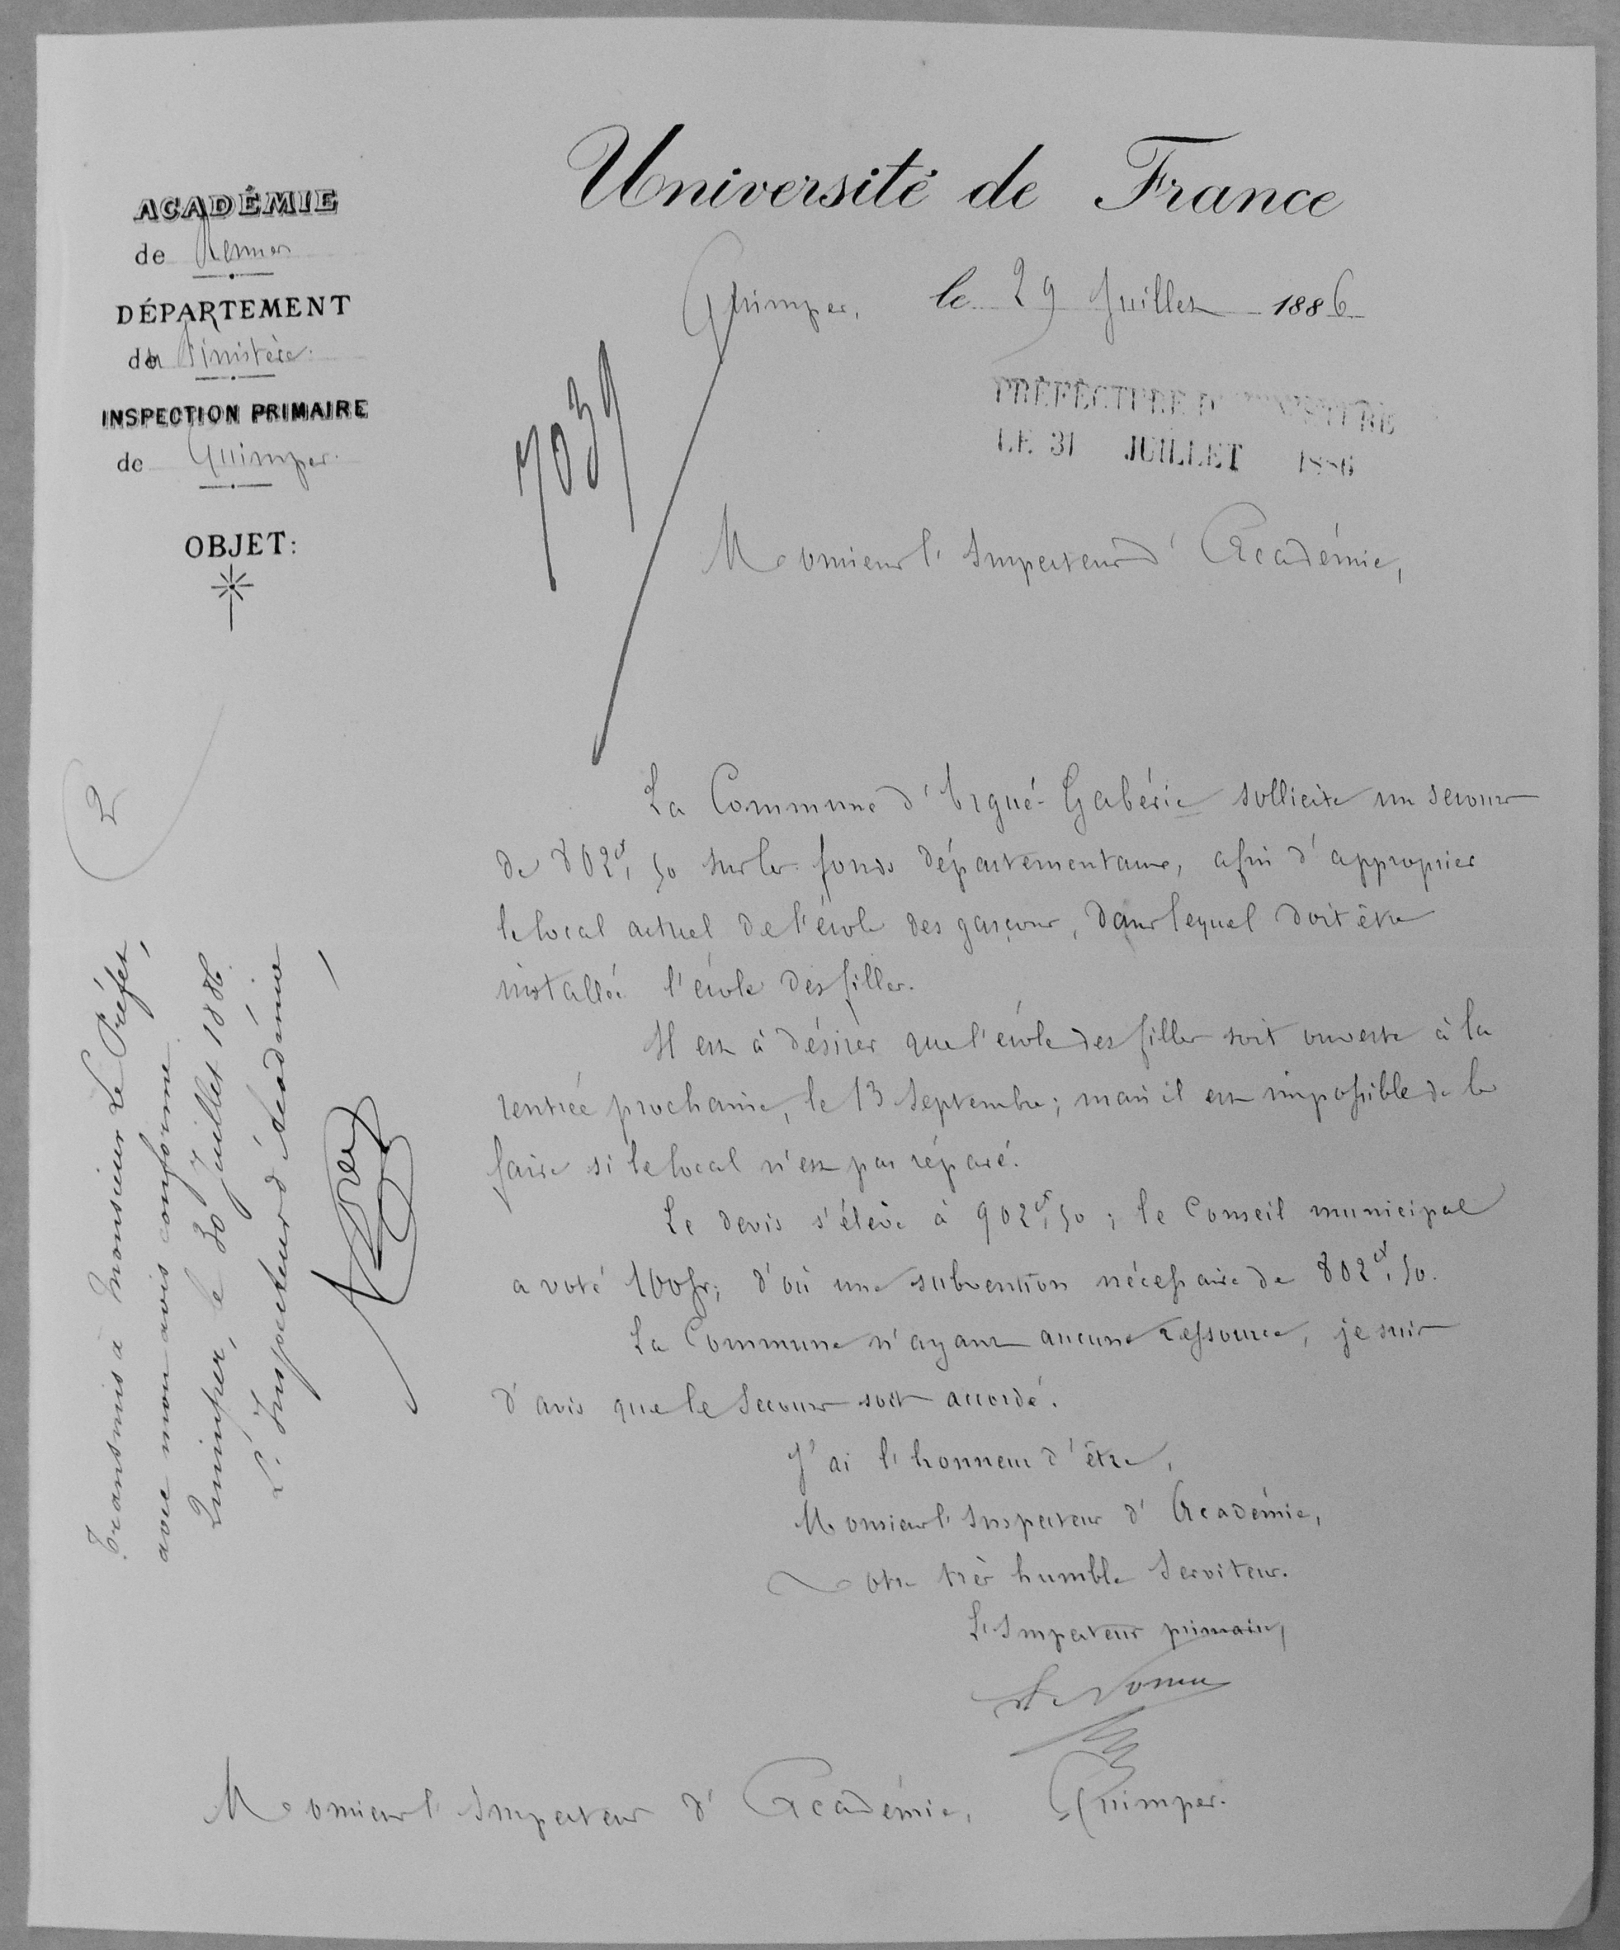 Université de France
ACADÉMIE
de Rennes
DÉPARTEMENT
du Finistère.
INSPECTION PRIMAIRE
de Quimper.
OBJET:
Quimper, le 29 Juillet 1886
7039
PRÉFECTURE DU FINISTÈRE
LE 31 JUILLET 1886
Monsieur l'Inspecteur d'Académie,
La Commune d'Ergué-Gabéric sollicite un secours
de 802f,50 sur les fonds départementaux, afin d'approprier
le local actuel de l'école des garçons, dans lequel doit être
installée l'école des filles.
Il est à désirer que l'école des filles soit ouverte à la
rentrée prochaine, le 13 Septembre; mais il est impossible de le
faire si le local n'est pas réparé.
Le devis s'élève à 902f,50; le Conseil municipal
a voté 100fr; d'où une subvention nécessaire de 802f,50.
La Commune n'ayant aucune ressource, je suis
d'avis que le Secours soit accordé.
J'ai l'honneur d'être,
Monsieur l'Inspecteur d'Académie,
Votre très humble Serviteur.
L'Inspecteur primaire,
Monsieur l'Inspecteur d'Académie, Quimper.
2
Transmis à Monsieur Le Préfet,
avec mon avis conforme.
Quimper, le 30 Juillet 1886.
L'Inspecteur d'Académie